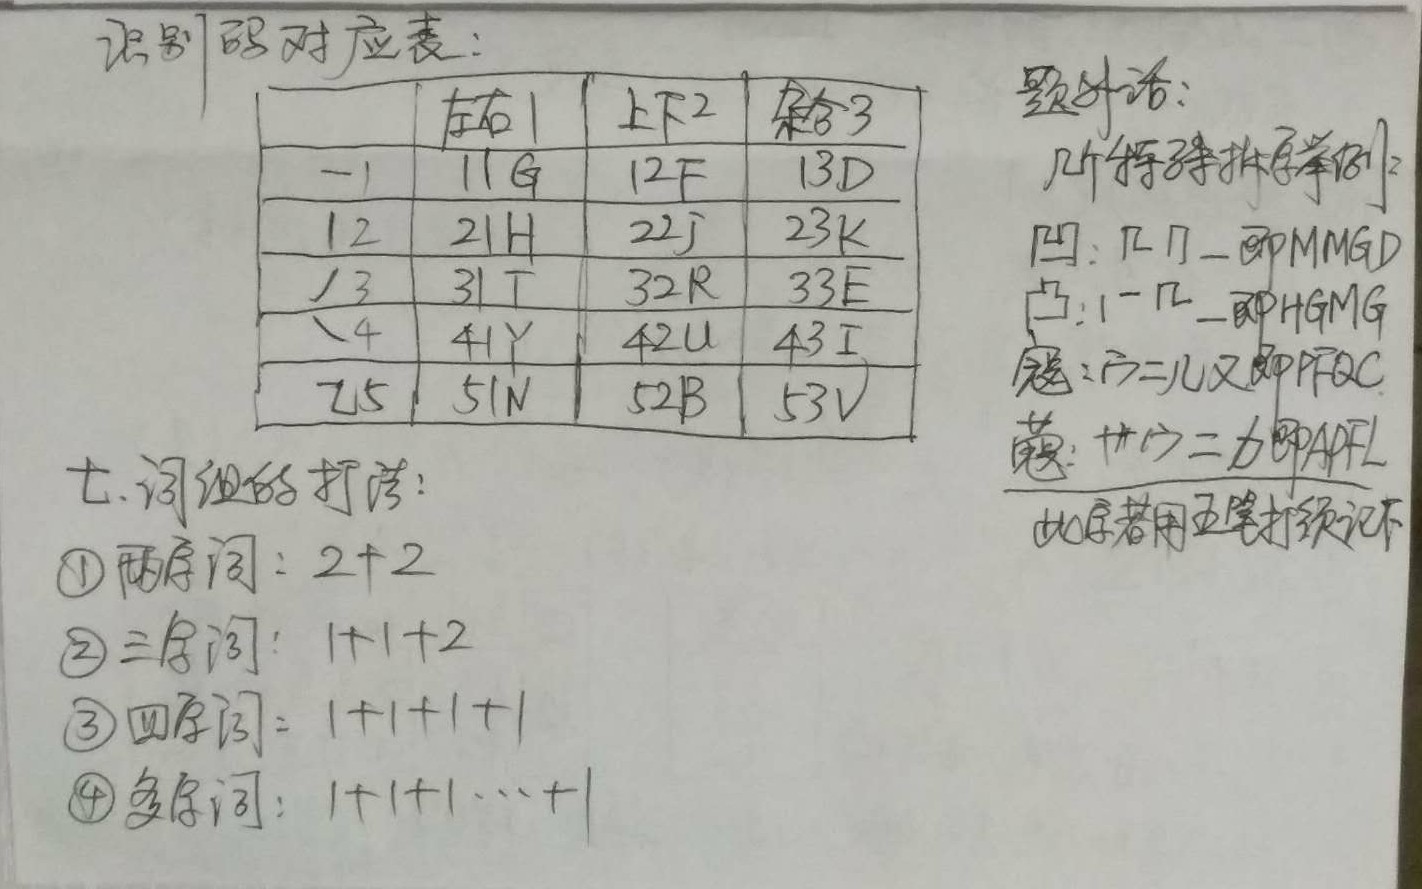 识别码对应表：
左右1 上下2 杂合3
一1 11G 12F 13D
丨2 21H 22J 23K
丿3 31T 32R 33E
丶4 41Y 42U 43I
乙5 51N 52B 53V
七.词组的打法：
①两字词：2+2
②三字词：1+1+2
③四字词：1+1+1+1
④多字词：1+1+1…+1
题外话：
几个特殊拆字举例：
凹：几冂一即MMGD
凸：丨一几一即HGMG
寇：宀二儿又即PFQC
蔻：艹宀二力即APFL
此字若用五笔打须记下